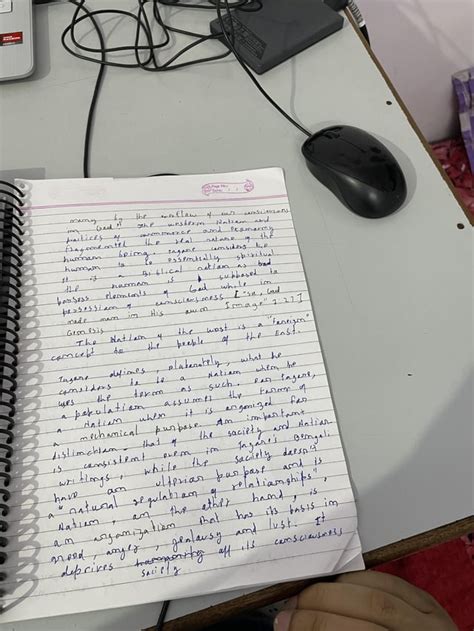 many by the overflow of our consciousness
in God" The western Nation and
politics of commerce and economy
the real nature of the
human being. Tagore considers the
human to be essentially spiritual
It is a Biblical notion as
the human is supposed to
possess elements of God while in
possession of consciousness ["So, God
made man in His own Image" 1.27]
Genesis
The Nation of the west is a "foreign"
concept to the people of the East.
Tagore defines, elaborately, what he
considers to be a Nation when he
uses the term as such. For Tagore,
a population assumes the form of
a Nation when it is organized for
a mechanical purpose. An important
distinction that of the society and Nation
is consistent even in Tagore's Bengali
writings, while the society doesn't
have an ulterior purpose and is
a "natural regulation of relationships",
Nation, on the other hand, is
an organization that has its basis in
need, anger, jealousy and lust. It
deprives off its consciousness
society